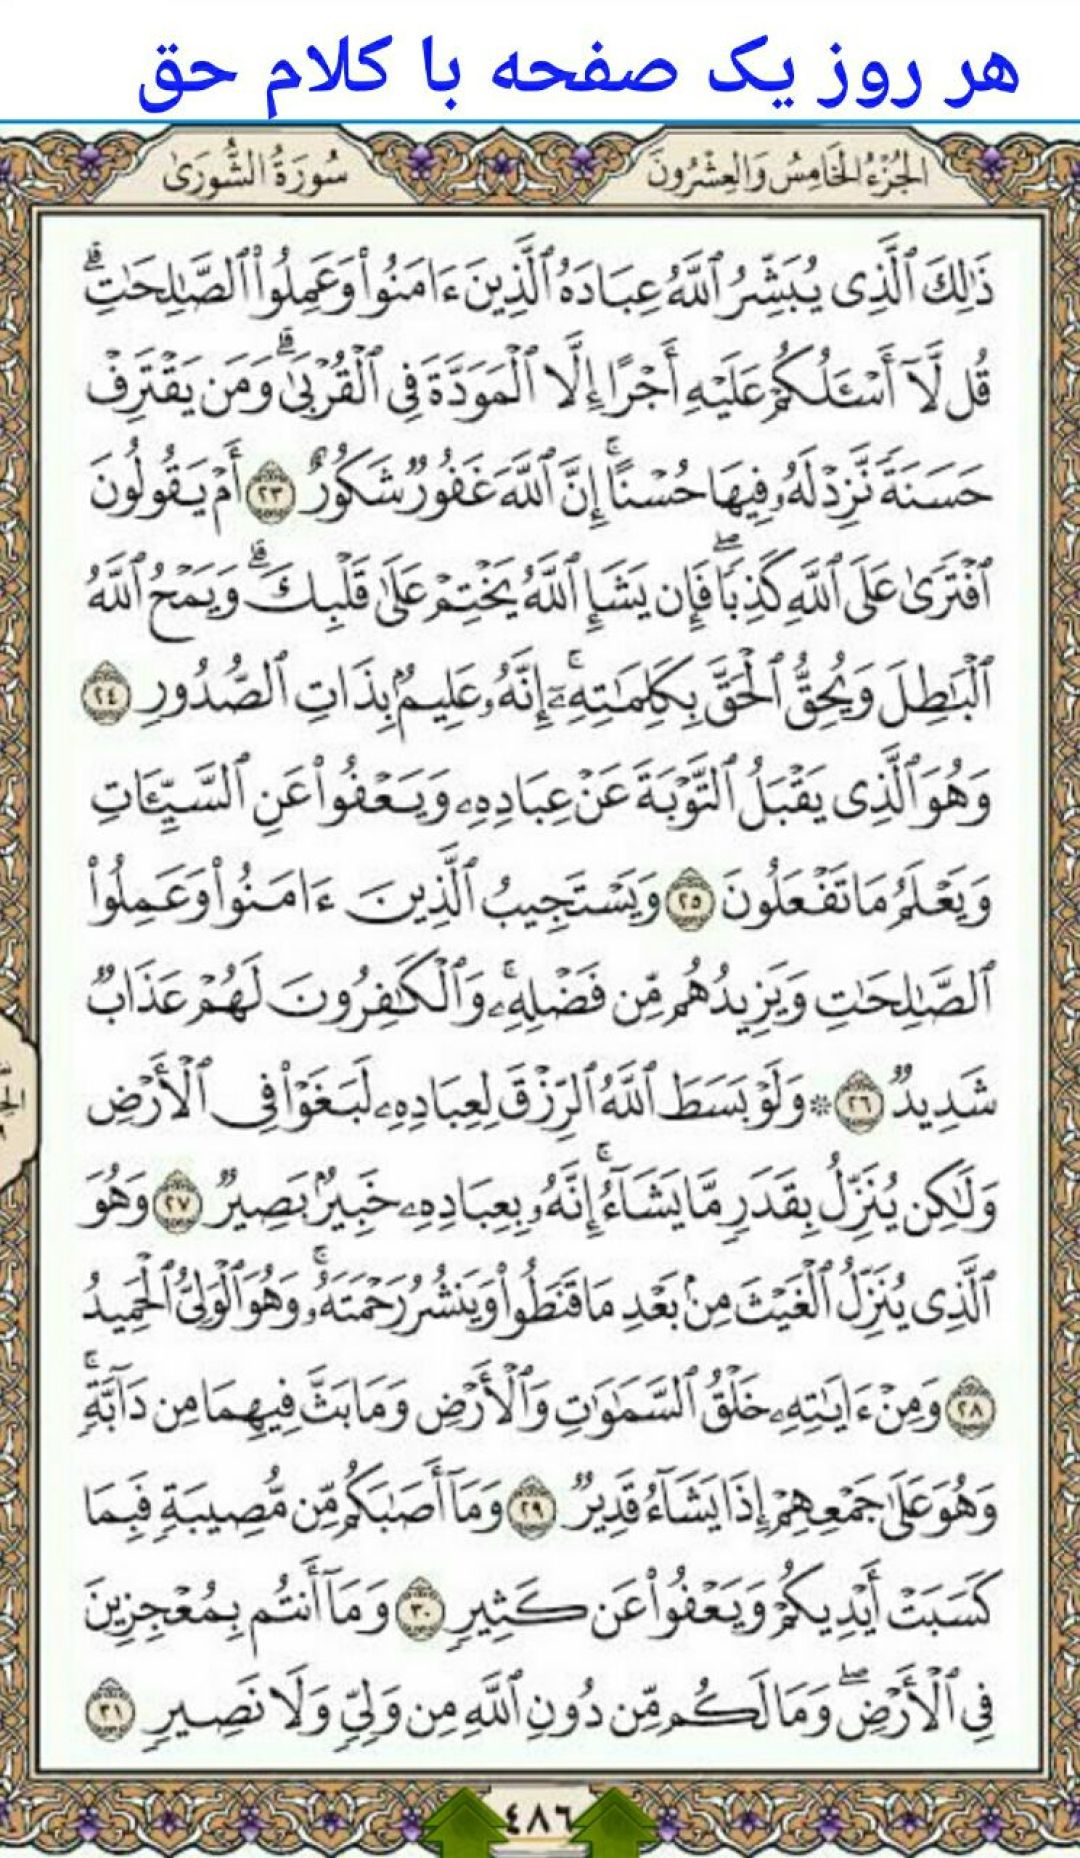 هر روز یک صفحه با کلام حق
الجُزْءُ الخَامِسُ وَالعِشْرُونَ
سُورَةُ الشُّورَىٰ
ذَٰلِكَ ٱلَّذِى يُبَشِّرُ ٱللَّهُ عِبَادَهُ ٱلَّذِينَ ءَامَنُوا۟ وَعَمِلُوا۟ ٱلصَّٰلِحَٰتِ ۗ
قُل لَّآ أَسْـَٔلُكُمْ عَلَيْهِ أَجْرًا إِلَّا ٱلْمَوَدَّةَ فِى ٱلْقُرْبَىٰ ۗ وَمَن يَقْتَرِفْ
حَسَنَةً نَّزِدْ لَهُۥ فِيهَا حُسْنًا ۚ إِنَّ ٱللَّهَ غَفُورٌ شَكُورٌ ٢٣ أَمْ يَقُولُونَ
ٱفْتَرَىٰ عَلَى ٱللَّهِ كَذِبًا ۖ فَإِن يَشَإِ ٱللَّهُ يَخْتِمْ عَلَىٰ قَلْبِكَ ۗ وَيَمْحُ ٱللَّهُ
ٱلْبَٰطِلَ وَيُحِقُّ ٱلْحَقَّ بِكَلِمَٰتِهِۦٓ ۚ إِنَّهُۥ عَلِيمٌۢ بِذَاتِ ٱلصُّدُورِ ٢٤
وَهُوَ ٱلَّذِى يَقْبَلُ ٱلتَّوْبَةَ عَنْ عِبَادِهِۦ وَيَعْفُوا۟ عَنِ ٱلسَّيِّـَٔاتِ
وَيَعْلَمُ مَا تَفْعَلُونَ ٢٥ وَيَسْتَجِيبُ ٱلَّذِينَ ءَامَنُوا۟ وَعَمِلُوا۟
ٱلصَّٰلِحَٰتِ وَيَزِيدُهُم مِّن فَضْلِهِۦ ۚ وَٱلْكَٰفِرُونَ لَهُمْ عَذَابٌ
شَدِيدٌ ٢٦ ۞ وَلَوْ بَسَطَ ٱللَّهُ ٱلرِّزْقَ لِعِبَادِهِۦ لَبَغَوْا۟ فِى ٱلْأَرْضِ
وَلَٰكِن يُنَزِّلُ بِقَدَرٍ مَّا يَشَآءُ ۚ إِنَّهُۥ بِعِبَادِهِۦ خَبِيرٌۢ بَصِيرٌ ٢٧ وَهُوَ
ٱلَّذِى يُنَزِّلُ ٱلْغَيْثَ مِنۢ بَعْدِ مَا قَنَطُوا۟ وَيَنشُرُ رَحْمَتَهُۥ ۚ وَهُوَ ٱلْوَلِىُّ ٱلْحَمِيدُ
٢٨ وَمِنْ ءَايَٰتِهِۦ خَلْقُ ٱلسَّمَٰوَٰتِ وَٱلْأَرْضِ وَمَا بَثَّ فِيهِمَا مِن دَآبَّةٍ ۚ
وَهُوَ عَلَىٰ جَمْعِهِمْ إِذَا يَشَآءُ قَدِيرٌ ٢٩ وَمَآ أَصَٰبَكُم مِّن مُّصِيبَةٍ فَبِمَا
كَسَبَتْ أَيْدِيكُمْ وَيَعْفُوا۟ عَن كَثِيرٍ ٣٠ وَمَآ أَنتُم بِمُعْجِزِينَ
فِى ٱلْأَرْضِ ۖ وَمَا لَكُم مِّن دُونِ ٱللَّهِ مِن وَلِىٍّ وَلَا نَصِيرٍ ٣١
٤٨٦